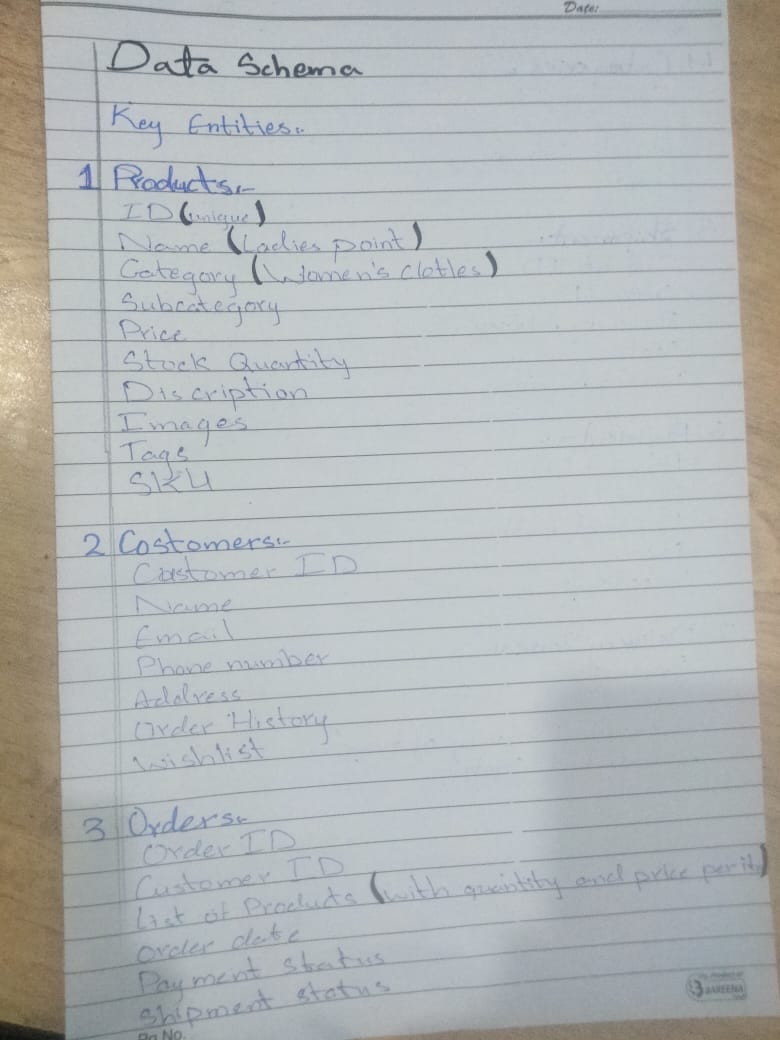 Date:
Data Schema
Key Entities:-
1 Products:-
ID (unique)
Name (Ladies point)
Category (Women's clotles)
Subcategory
Price
Stock Quantity
Discription
Images
Tags
SKU
2 Costomers:-
Costomer ID
Name
Email
Phone number
Address
Order History
Wishlist
3 Orders:-
Order ID
Customer ID
List of Products (with quantity and price per it)
Order date
Payment status
Shipment status
Pg No.
SAREENA